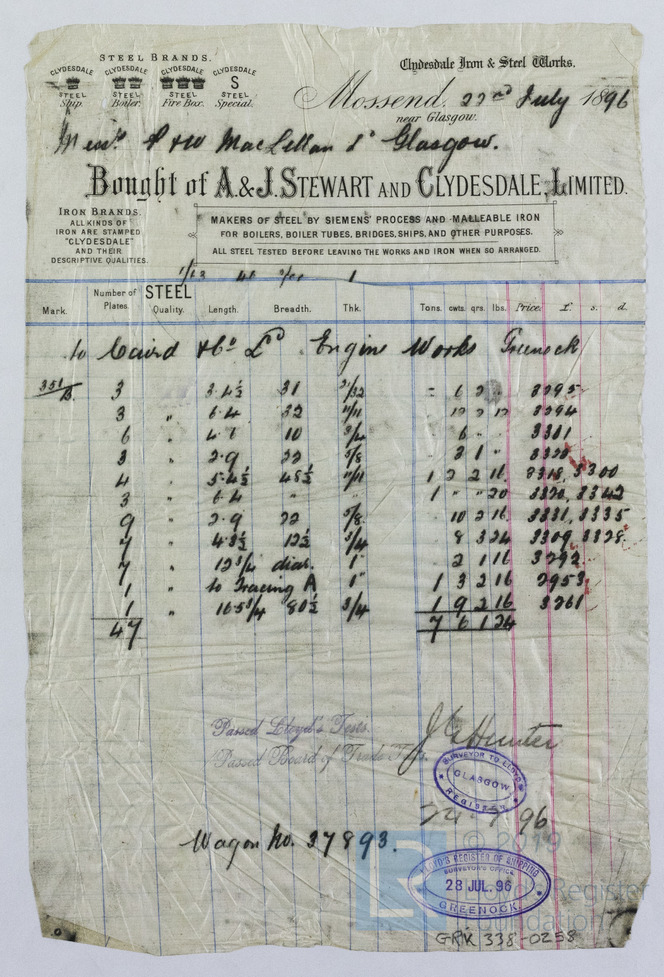 STEEL BRANDS.
CLYDESDALE CLYDESDALE CLYDESDALE CLYDESDALE
S
STEEL STEEL STEEL STEEL
Ship. Boiler. Fire Box. Special.
Clydesdale Iron & Steel Works.
Mossend, 22nd July 1896
near Glasgow.
Messrs P & W MacLellan Ld Glasgow.
Bought of A. & J. STEWART AND CLYDESDALE, LIMITED.
IRON BRANDS.
ALL KINDS OF
IRON ARE STAMPED
"CLYDESDALE"
AND THEIR
DESCRIPTIVE QUALITIES.
MAKERS OF STEEL BY SIEMENS' PROCESS AND MALLEABLE IRON
FOR BOILERS, BOILER TUBES, BRIDGES, SHIPS, AND OTHER PURPOSES.
ALL STEEL TESTED BEFORE LEAVING THE WORKS AND IRON WHEN SO ARRANGED.
Mark. Number of Plates. STEEL Quality. Length. Breadth. Thk. Tons. cwts. qrs. lbs. Price. £ s. d.
to Caird & Co Ld Engine Works Greenock
3 3.4½ 31 6 2 3295
3 " 6.4 32 12 2 12 3294
6 " 10 3/4 6 " 3301
3 " 2.9 22 5/8 3 1 "
4 " 5.4½ 48½ 1 2 2 16 3315, 3300
3 " 6.4 " " 1 " " 20 3320, 3342
9 " 2.9 22 5/8 10 2 16 3331, 3335
7 " 4.3½ 12½ 3/4 8 3 24 3309, 3328
7 " 12 3/4 diar. 1" 2 1 16 3292
1 " to Tracing A 1" 1 3 2 16 2953
1 " 16.5 3/4 80½ 3/4 1 9 2 16 3261
47 7 6 1 24
Passed Lloyd's Tests.
Passed Board of Trade Tests.
J G Hunter
SURVEYOR TO LLOYDS
GLASGOW
REGISTER
24-7-96
Wagon No. 37893.
© 2019
Lloyd's Register
Foundation
LLOYD'S REGISTER OF SHIPPING
SURVEYOR'S OFFICE
28 JUL. 96
GREENOCK
GRK 338-0258